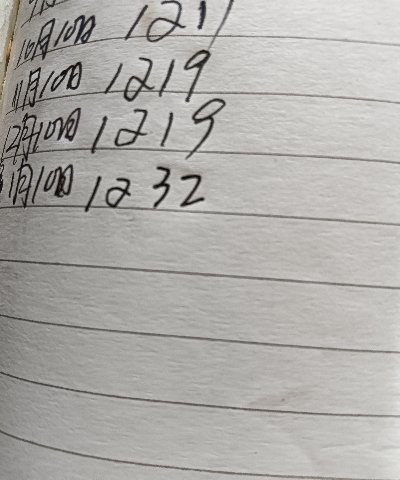 10月10日 1211
11月10日 1219
12月10日 1219
1月10日 1232